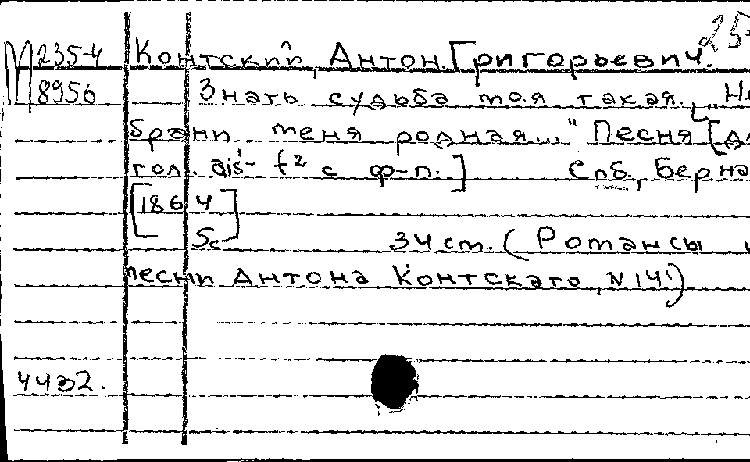 25
М 235-4 Контский, Антон Григорьевич.
8956 Знать судьба моя такая. „Не
брани меня родная..." Песня [дл
гол. dis¹- f² с ф-п.] Спб, Берна
[1864]
5с 34 cm. (Романсы и
песни Антона Контскаго, N 14)
4432.